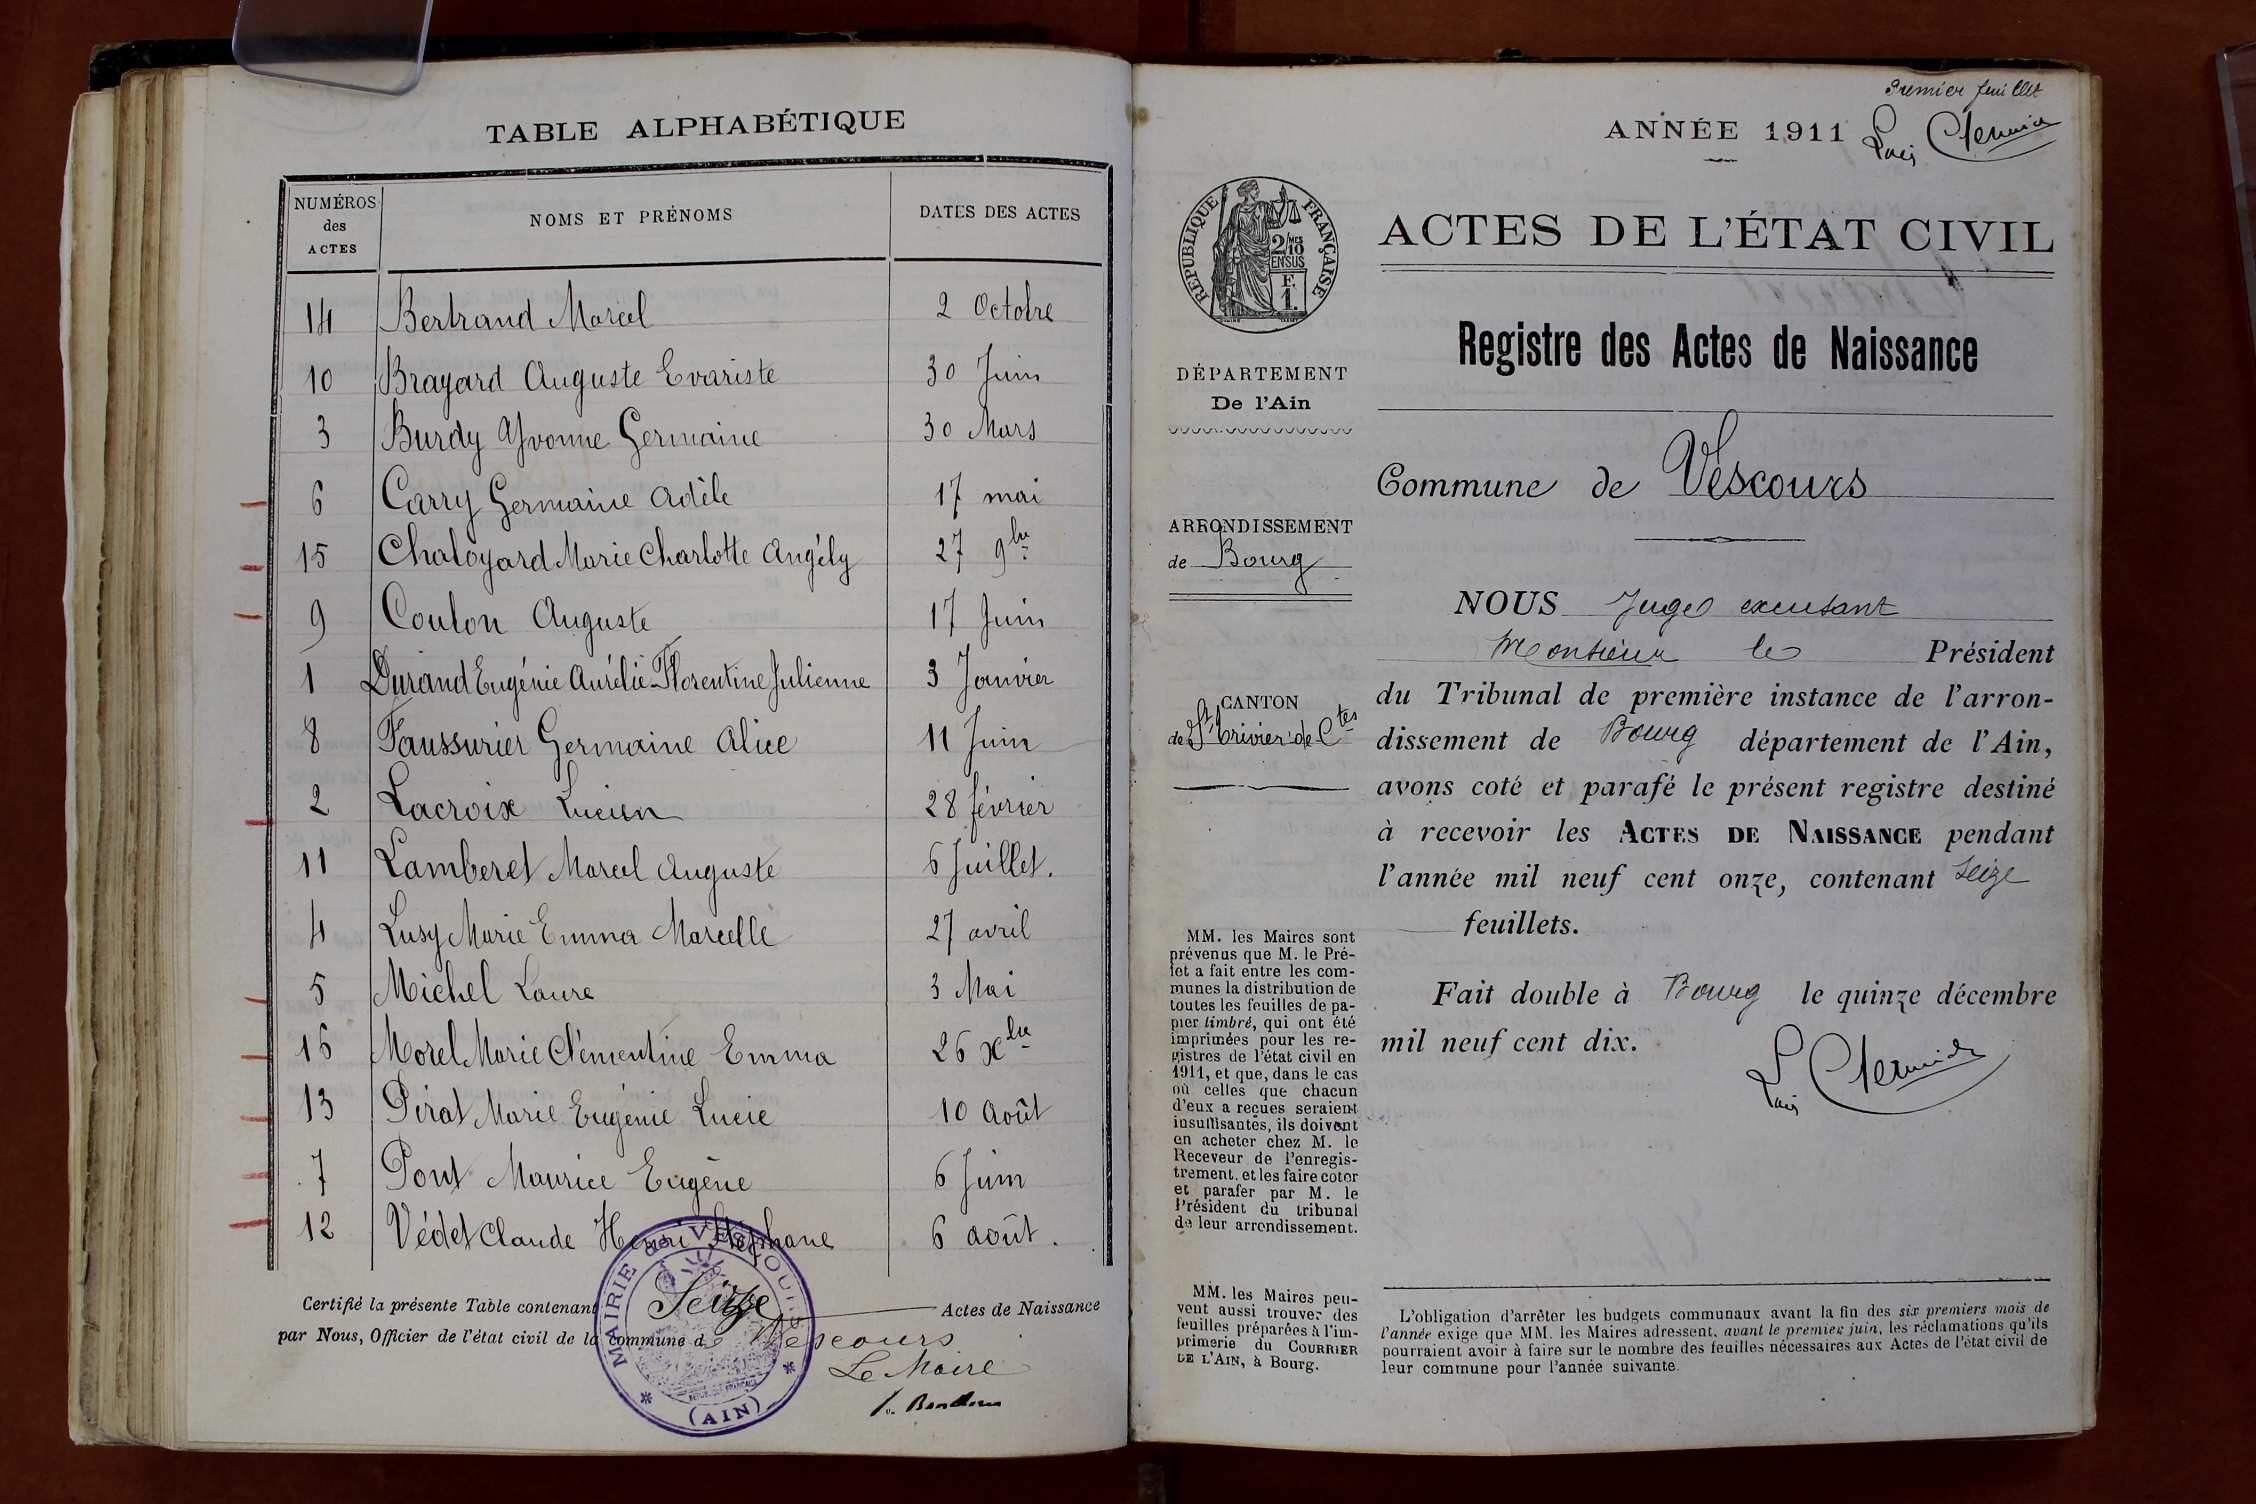 TABLE ALPHABÉTIQUE
NUMÉROS des ACTES NOMS ET PRÉNOMS DATES DES ACTES
14 Bertrand Marcel 2 Octobre
10 Brayard Auguste Evariste 30 Juin
3 Burdy Yvonne Germaine 30 Mars
6 Carry Germaine Adèle 17 mai
15 Chaloyard Marie Charlotte Angély 27 9bre
9 Coulon Auguste 17 Juin
1 Durand Eugénie Aurélie Florentine Julienne 3 Janvier
8 Faussurier Germaine Alice 11 Juin
2 Lacroix Lucien 28 février
11 Lamberet Marcel Auguste 6 Juillet.
4 Lusy Marie Emma Marcelle 27 avril
5 Michel Laure 3 Mai
16 Morel Marie Clémentine Emma 26 Xbre
13 Pirat Marie Eugénie Lucie 10 Août
7 Pont Maurice Eugène 6 Juin
12 Védet Claude Henri Stéphane 6 août.
Certifié la présente Table contenant Seize Actes de Naissance
par Nous, Officier de l'état civil de la commune de Vescours
Le Maire
MAIRIE de VESCOURS
RÉPUBLIQUE FRANÇAISE
(AIN)
Premier feuillet
ANNÉE 1911
RÉPUBLIQUE FRANÇAISE
2/10 MES
EN SUS
F.
1.
ACTES DE L'ÉTAT CIVIL
Registre des Actes de Naissance
DÉPARTEMENT
De l'Ain
Commune de Vescours
ARRONDISSEMENT
de Bourg
CANTON
de St Trivier de Ctes
NOUS Juge exerçant
Monsieur le Président
du Tribunal de première instance de l'arron-
dissement de Bourg département de l'Ain,
avons coté et parafé le présent registre destiné
à recevoir les ACTES DE NAISSANCE pendant
l'année mil neuf cent onze, contenant seize
feuillets.
Fait double à Bourg le quinze décembre
mil neuf cent dix.
MM. les Maires sont
prévenus que M. le Pré-
fet a fait entre les com-
munes la distribution de
toutes les feuilles de pa-
pier timbré, qui ont été
imprimées pour les re-
gistres de l'état civil en
1911, et que, dans le cas
où celles que chacun
d'eux a reçues seraient
insuffisantes, ils doivent
en acheter chez M. le
Receveur de l'enregis-
trement, et les faire coter
et parafer par M. le
Président du tribunal
de leur arrondissement.
MM. les Maires peu-
vent aussi trouver des
feuilles préparées à l'im-
primerie du COURRIER
DE L'AIN, à Bourg.
L'obligation d'arrêter les budgets communaux avant la fin des six premiers mois de
l'année exige que MM. les Maires adressent, avant le premier juin, les réclamations qu'ils
pourraient avoir à faire sur le nombre des feuilles nécessaires aux Actes de l'état civil de
leur commune pour l'année suivante.